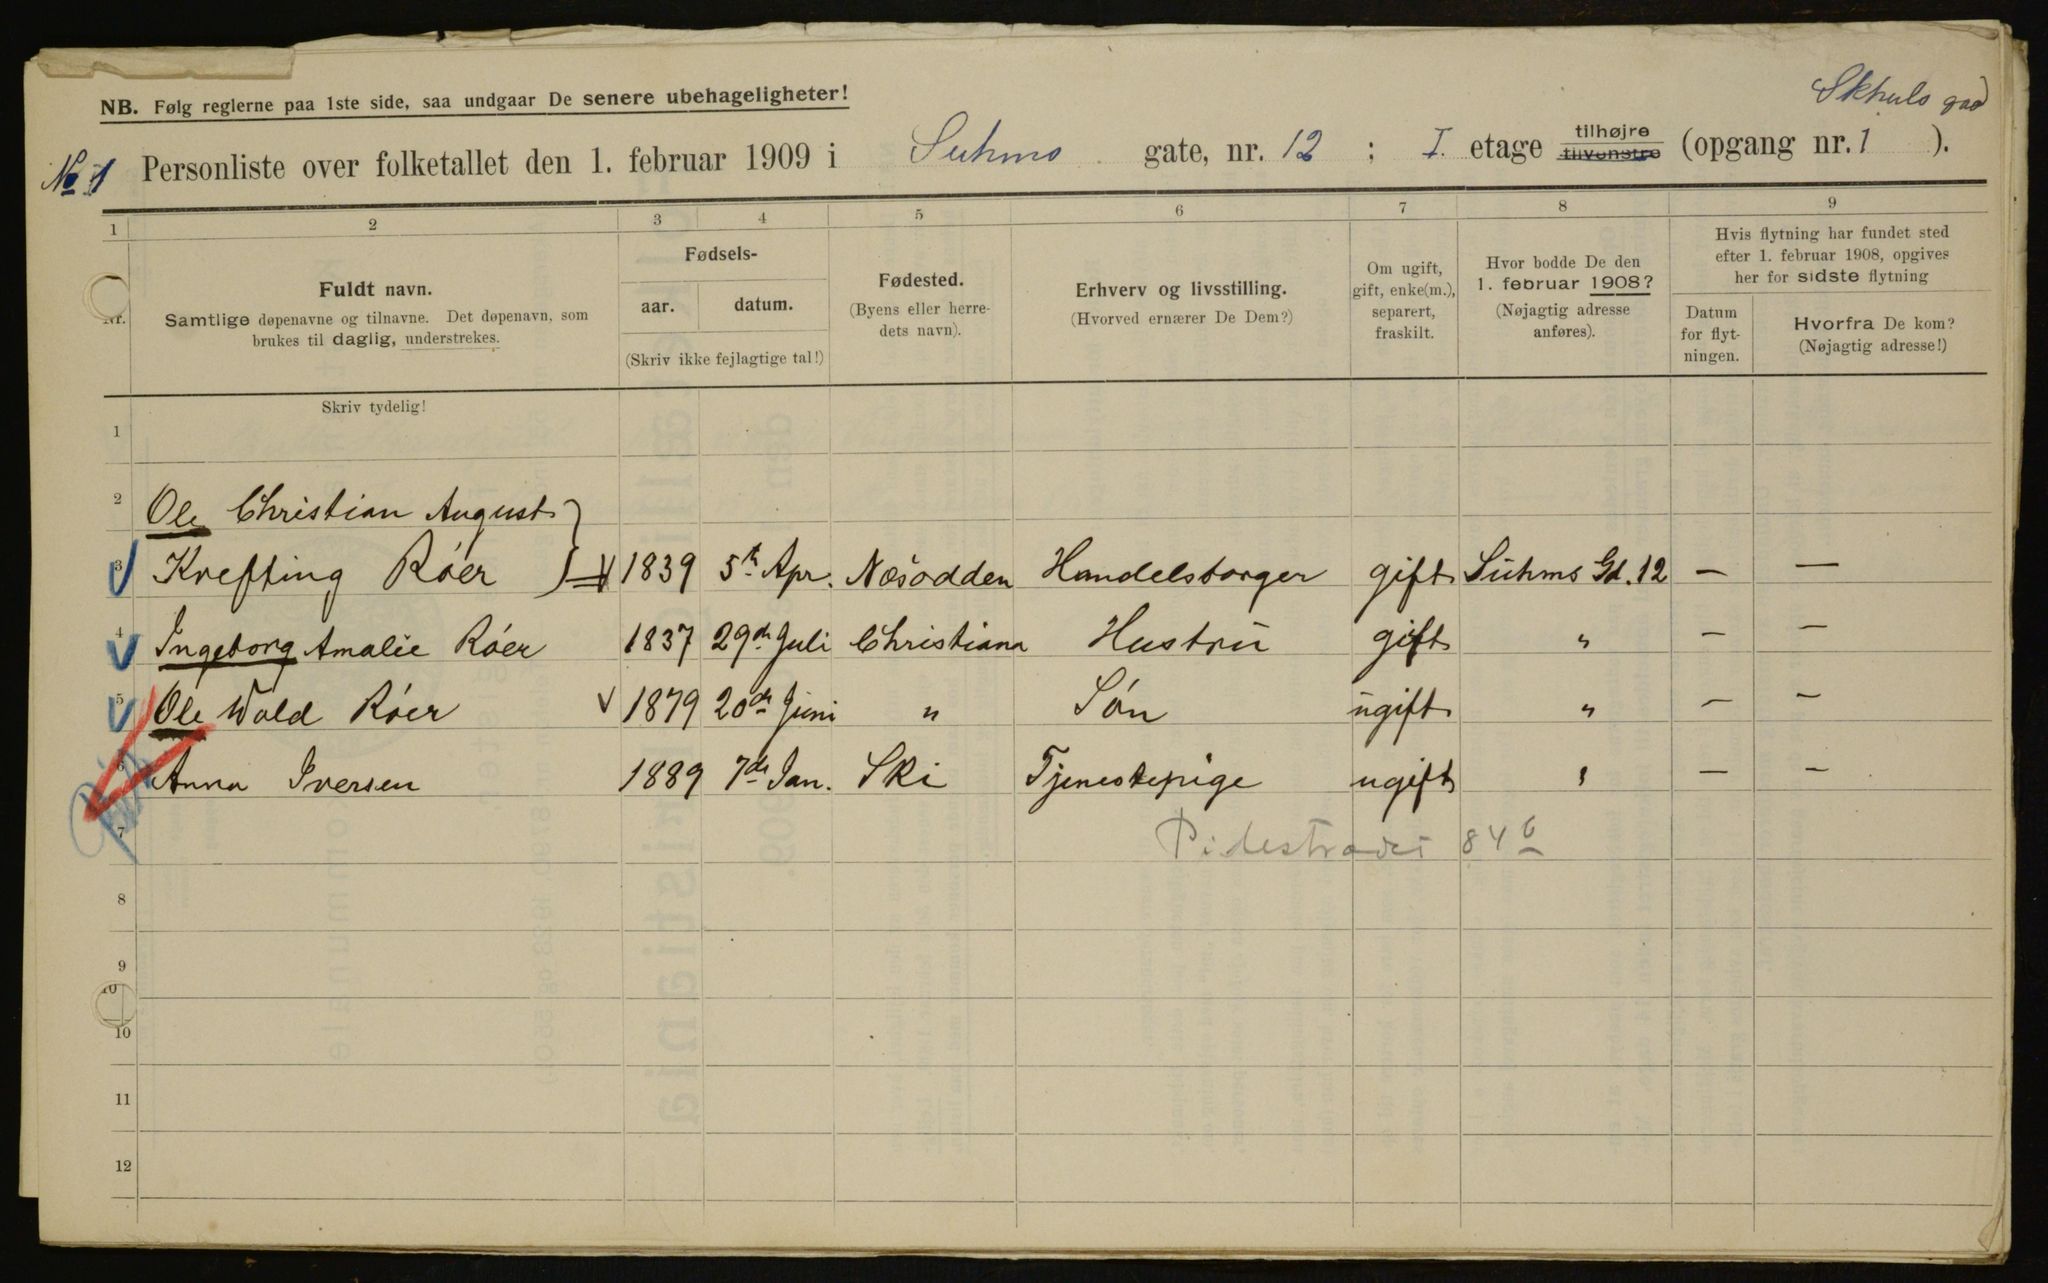 Skhuls gad
NB. Følg reglerne paa 1ste side, saa undgaar De senere ubehageligheter!
No 1 Personliste over folketallet den 1. februar 1909 i Suhms gate, nr. 12 ; I. etage tilhøjre tilvenstre (opgang nr. 1 ).
1 2 3 4 5 6 7 8 9
Nr.
Fuldt navn.
Samtlige døpenavne og tilnavne. Det døpenavn, som
brukes til daglig, understrekes.
Skriv tydelig!
Fødsels-
aar. datum.
(Skriv ikke fejlagtige tal!)
Fødested.
(Byens eller herre-
dets navn).
Erhverv og livsstilling.
(Hvorved ernærer De Dem?)
Om ugift,
gift, enke(m.),
separert,
fraskilt.
Hvor bodde De den
1. februar 1908?
(Nøjagtig adresse
anføres).
Hvis flytning har fundet sted
efter 1. februar 1908, opgives
her for sidste flytning
Datum
for flyt-
ningen.
Hvorfra De kom?
(Nøjagtig adresse!)
1
2 Ole Christian August
3 Krefting Róer 1839 5te Apr. Nesodden Handelsborger gift Suhms Gd. 12 — —
4 Ingeborg Amalie Róer 1837 29de Juli Christiana Hustru gift " — —
5 Ole Wold Róer 1879 20de Juni " Són ugift " — —
6 Anna Iversen 1889 7de Jan. Ski Tjenestepige ugift " — —
7 Pilestrædet 84 b
8
9
10
10
11
12